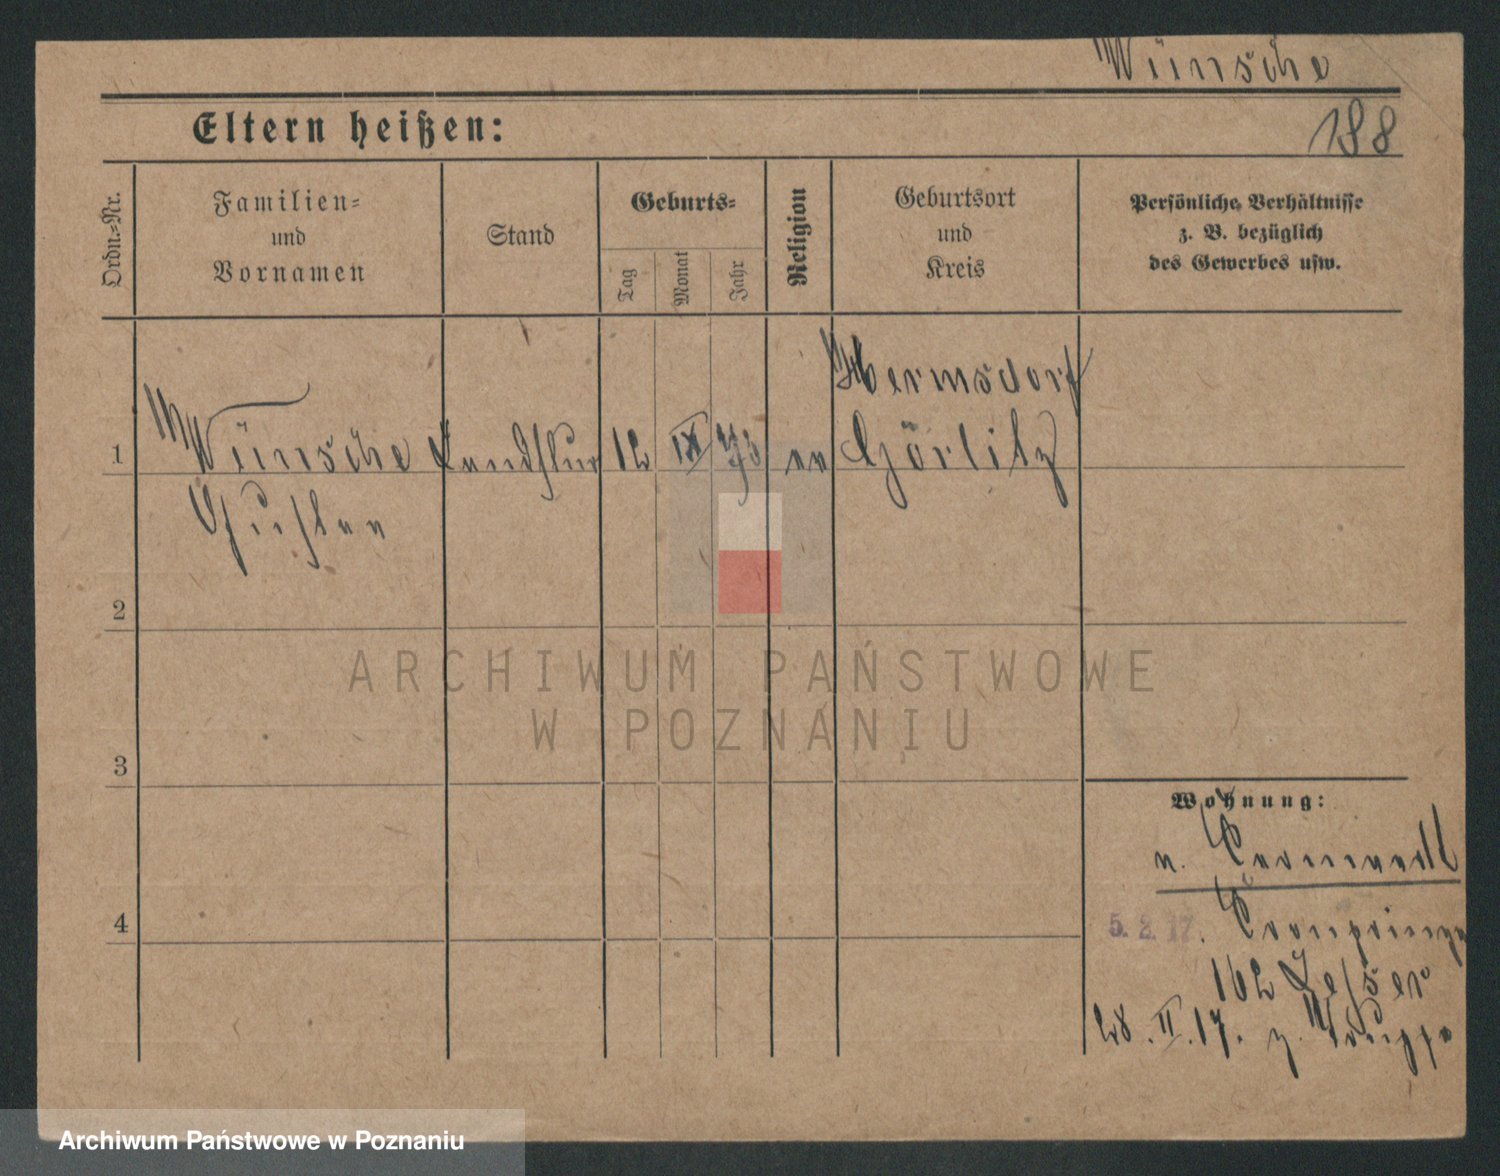 Wünsche
188
Eltern heißen:
Ordn.-Nr.
Familien-
und
Vornamen
Stand
Geburts-
Tag
Monat
Jahr
Religion
Geburtsort
und
Kreis
Persönliche Verhältnisse
z. B. bezüglich
des Gewerbes usw.
1
Wünsche
Gustav
Landstur
12
IX
73
ev
Hermsdorf
Görlitz
2
3
4
Wohnung:
v.
5. 2. 17.
Kronprinzen
162
28. II. 17. z. Truppe
ARCHIWUM PAŃSTWOWE
W POZNANIU
Archiwum Państwowe w Poznaniu